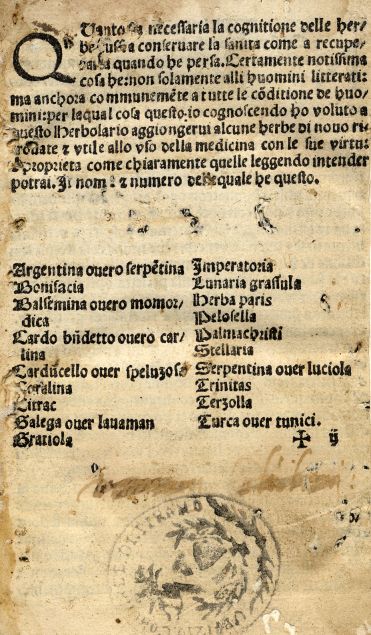 QUanto sia necessaria la cognitione delle her-
be: cussi a conseruare la sanita come a recupe-
rarla quando he persa. Certamente notissima
cosa he: non solamente alli huomini litterati:
ma anchora communemẽte a tutte le cõditione de huo-
mini: per laqual cosa questo .io cognoscendo ho voluto a
questo Herbolario aggiongerui alcune herbe di nouo ri-
trouate & vtile allo vso della medicina con le sue virtu:
& proprieta come chiaramente quelle leggendo intender
potrai. Il nome & numero delequale he questo.
Argentina ouero serpẽtina
Bonifacia
Balsemina ouero momor-
dica
Cardo bñdetto ouero car-
lina
Carducello ouer speluzosa
Coralina
Citrac
Galega ouer lauaman
Gratiola
Imperatoria
Lunaria grassula
Herba paris
Pelosella
Palmachristi
Stellaria
Serpentina ouer luciola
Trinitas
Terzolla
Turca ouer tunici.
✠ ij